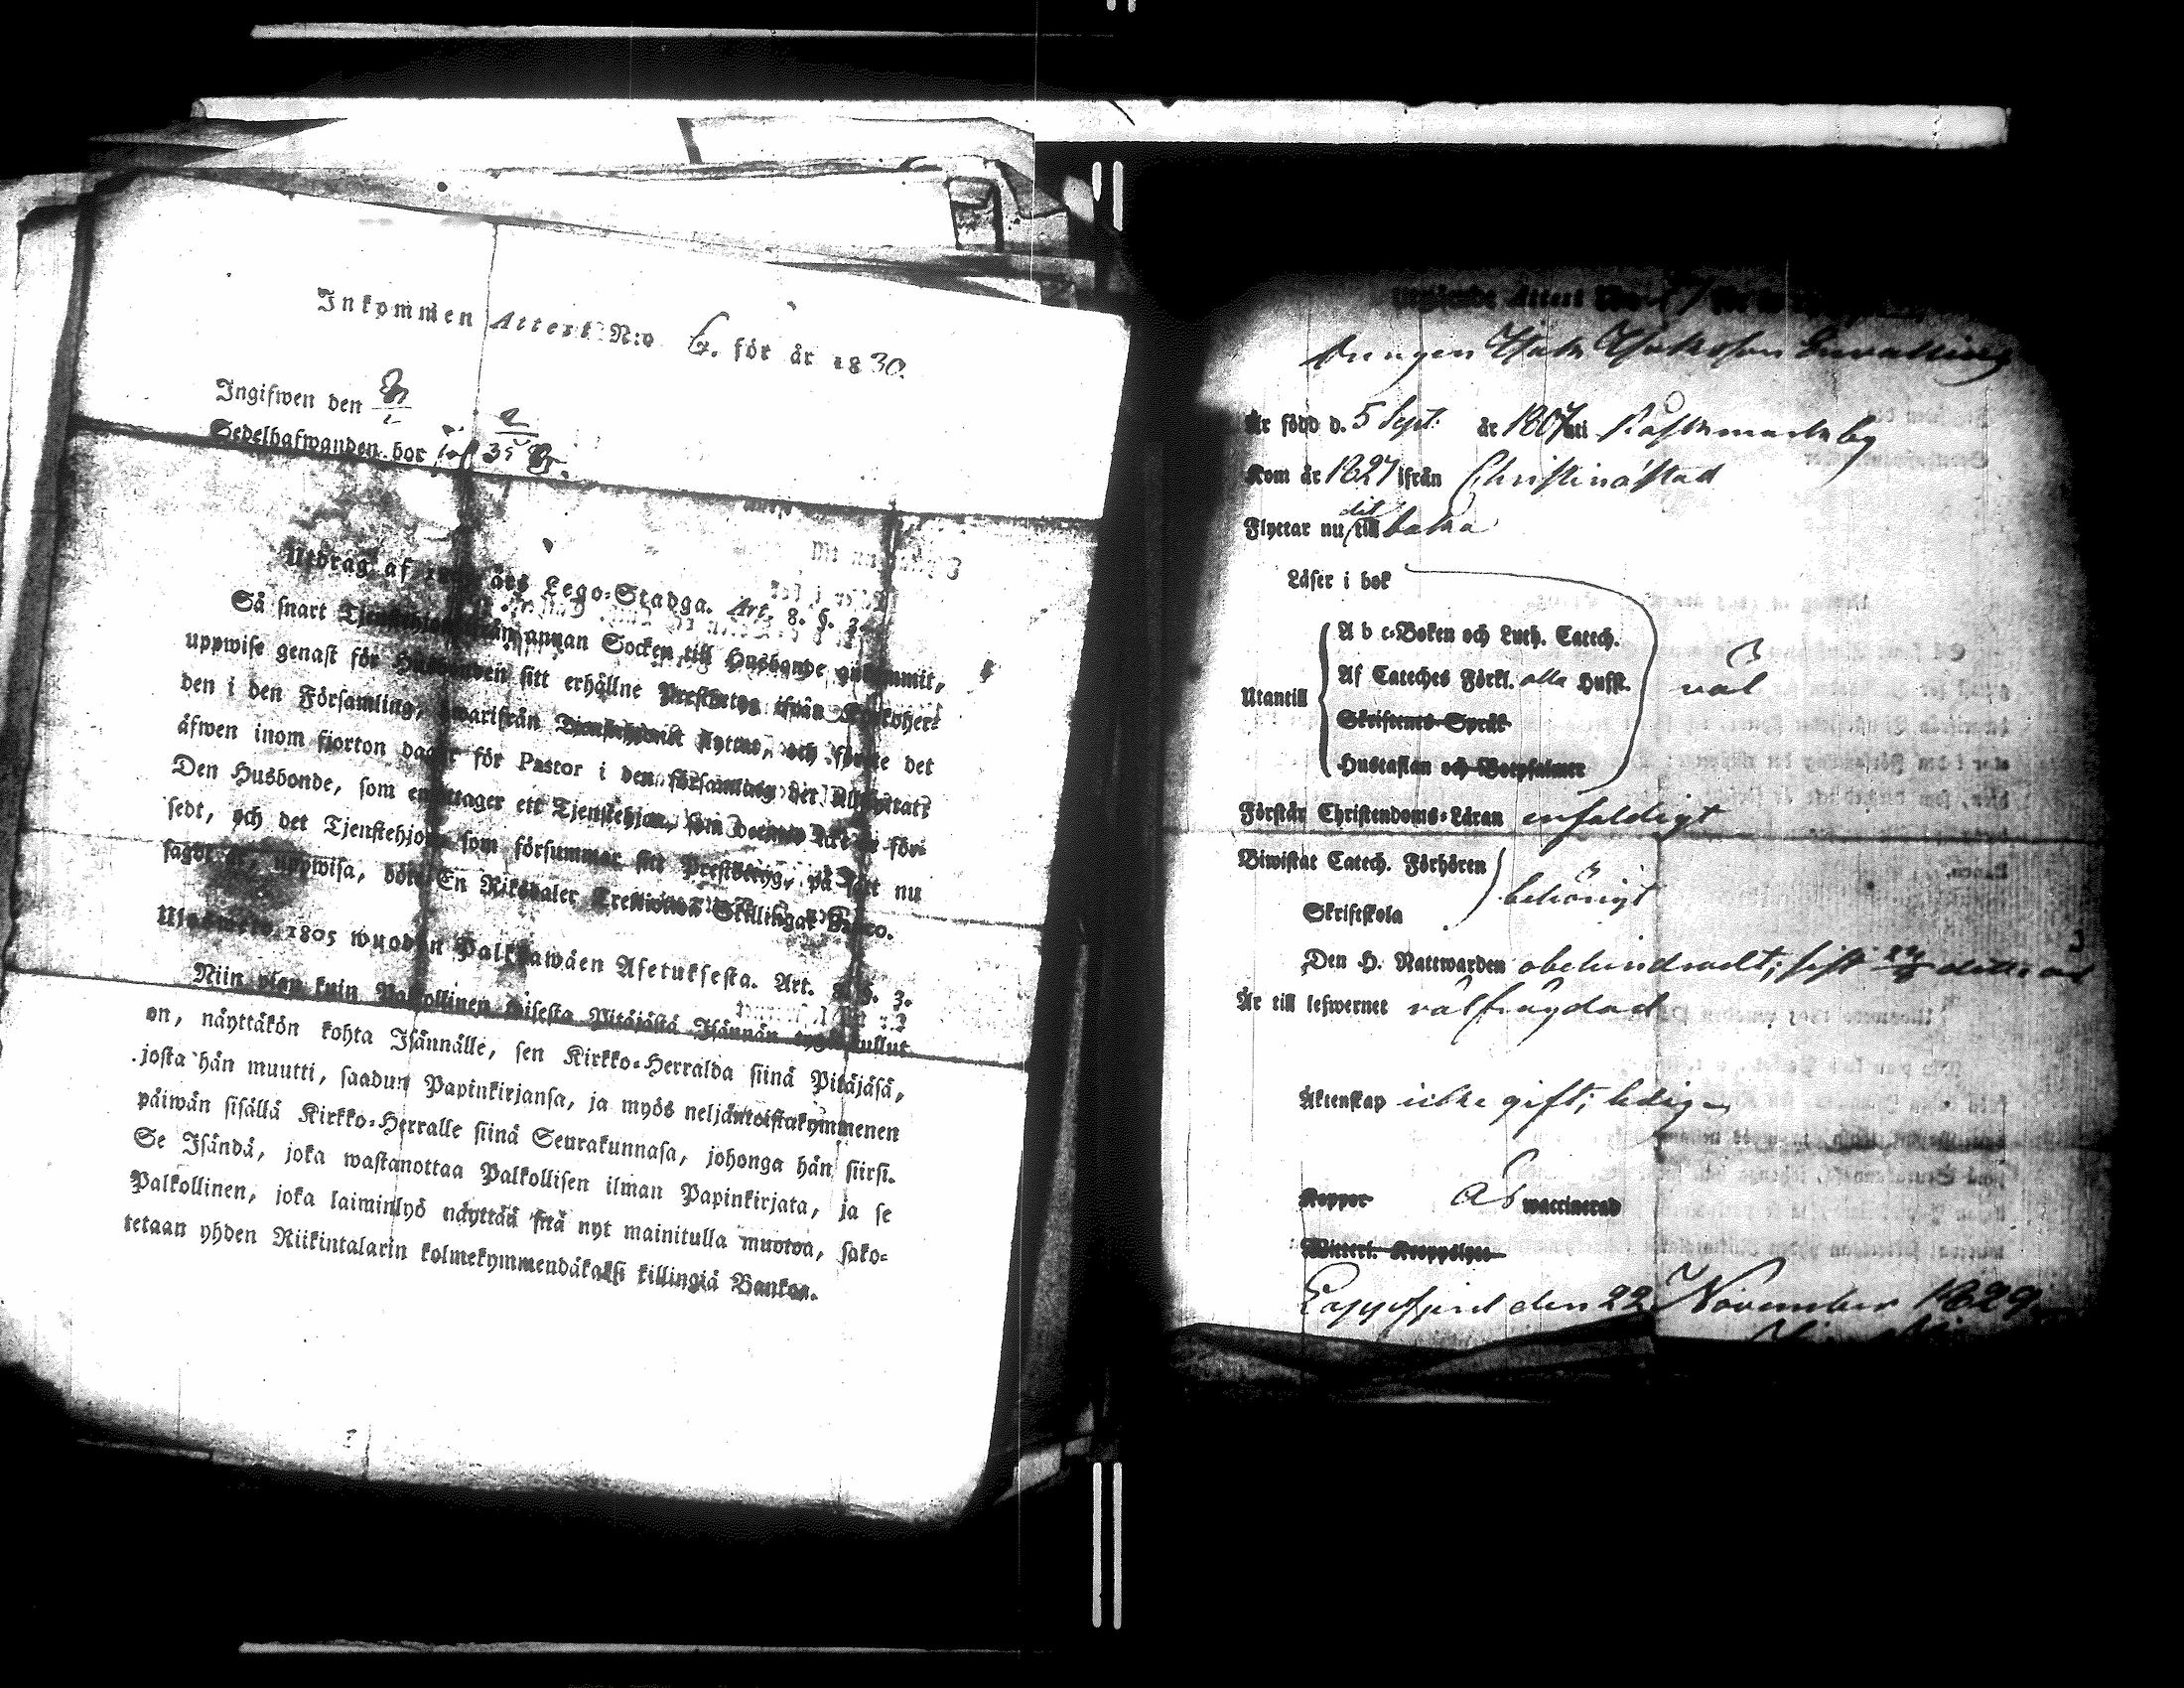 Inkommen Attest N:o 6. för år 1830.
Ingifwen den
Sedelhafwanden bor
Utdrag af års Lego-Stadga. Art. 8. §. 3.
Så snart Tjenstehjon ifrån annan Socken till Husbonde ankommit,
uppwise genast för Husbonden sitt erhållne Prestbetyg ifrån Kyrkoher-
den i den Församling, hwarifrån Tjenstehjonet flyttat, och förete det
äfwen inom fjorton dagar för Pastor i den församling det tillflyttat;
Den Husbonde, som emottager ett Tjenstehjon, som dermed icke är för-
sedt, och det Tjenstehjon som försummar sitt Prestbetyg, på sätt nu
sagdt är, uppwisa, böte En Riksdaler Trettiotwå Skillingar Banco.
1805 wuoden Palkkawäen Asetuksesta. Art. 8. §. 3.
Niin pian kuin Palkollinen toisesta Pitäjästä Isännän tygö tullut
on, näyttäkön kohta Isännälle, sen Kirkko-Herralda siinä Pitäjäsä,
josta hän muutti, saadun Papinkirjansa, ja myös neljäntoistakymmenen
päiwän sisällä Kirkko-Herralle siinä Seurakunnasa, johonga hän siirsi.
Se Isändä, joka wastanottaa Palkollisen ilman Papinkirjata, ja se
Palkollinen, joka laiminlyö näyttää sitä nyt mainitulla muotoa, sako-
tetaan yhden Riikintalarin kolmekymmendäkaksi killingiä Bankoa.
Utgående Attest N:o
Drengen Isak Isaksson
Är född d. 5 Sept. år 1807 uti
Kom år 1827 ifrån Christinæstad
Flyttar nu dit till baka
Läser i bok
A b c-Boken och Luth. Catech.
Af Cateches Förkl. alla Hufst.
Utantill väl
Skriftenes Språk
Hustaflan och Botpsalmer
Förstår Christendoms-Läran enfaldigt
Biwistat Catech. Förhören
behörigt
Skriftskola
Den H. Nattwarden obehindradt; sist detta år
Är till lefwernet välfrägdad
Äktenskap icke gift; ledig
Koppor waccinerad
Witterl. Kroppslyte
Lappfjerd den 22 November 1829